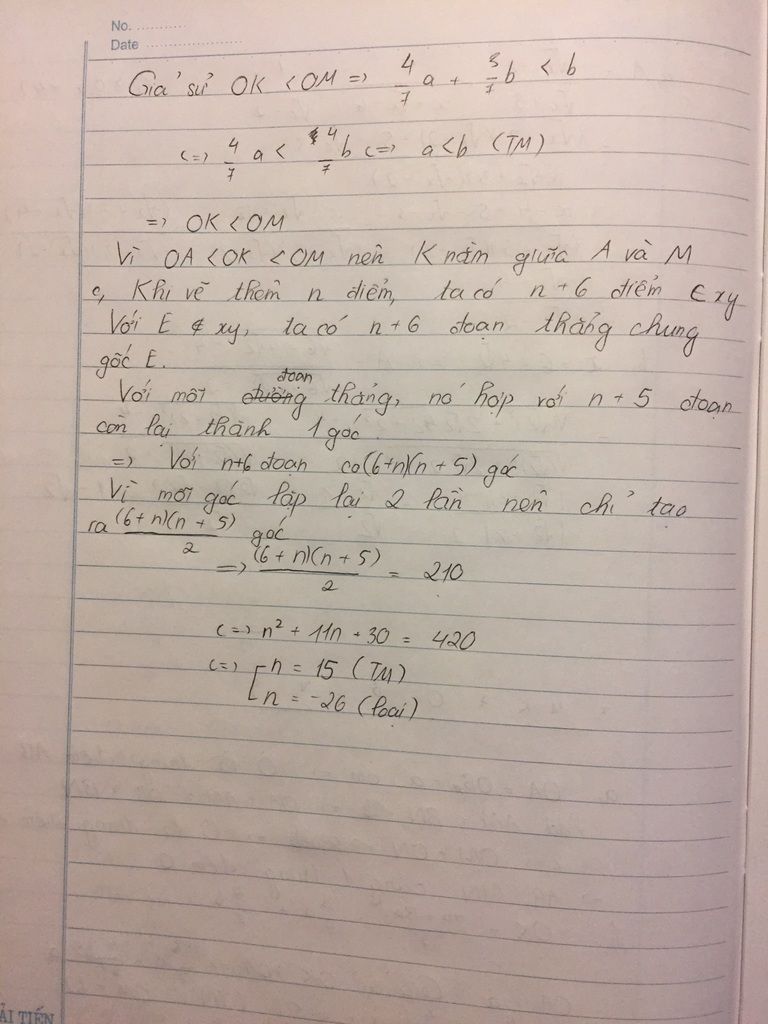 No. ............
Date ........................
Giả sử OK < OM => 4/7 a + 3/7 b < b
<=> 4/7 a < 4/7 b <=> a < b (TM)
=> OK < OM
Vì OA < OK < OM nên K nằm giữa A và M
c, Khi vẽ thêm n điểm, ta có n + 6 điểm ∈ xy
Với E ∉ xy, ta có n + 6 đoạn thẳng chung
gốc E.
Với mỗi đoạn thẳng, nó hợp với n + 5 đoạn
còn lại thành 1 góc.
=> Với n+6 đoạn có (6+n)(n + 5) góc
Vì mỗi góc lặp lại 2 lần nên chỉ tạo
ra (6+n)(n + 5)/2 góc
=> (6 + n)(n + 5)/2 = 210
<=> n² + 11n + 30 = 420
<=> [ n = 15 (TM)
n = -26 (loại)
ẢI TIẾN